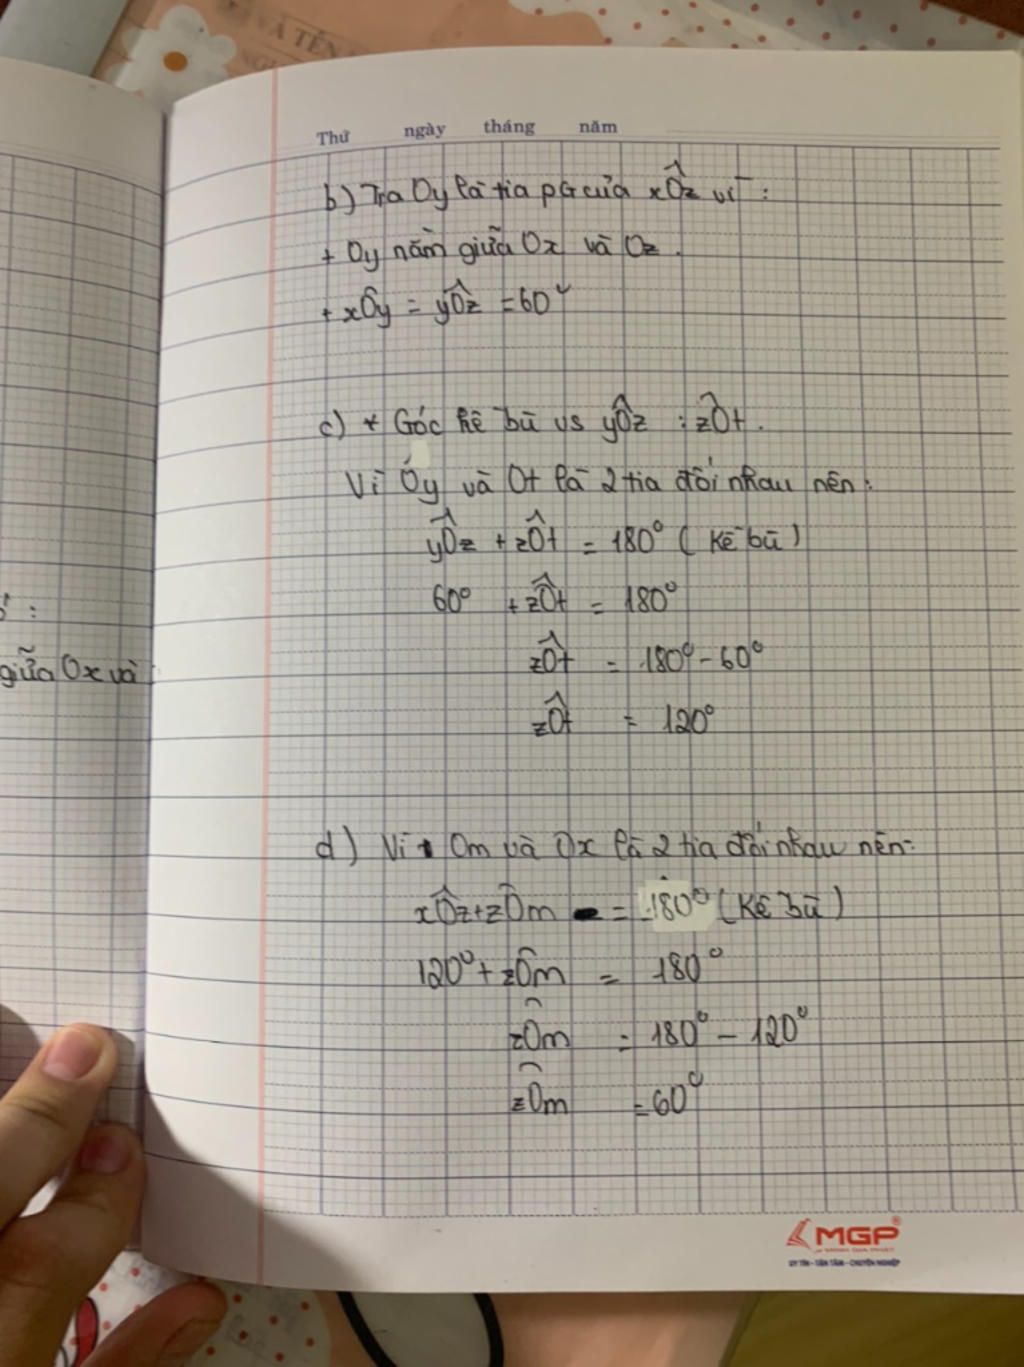 VÀ TÊN
Thứ ngày tháng năm
b) Tra Oy là tia pG của xÔz vì :
+ Oy nằm giữa Ox và Oz.
+ xÔy = yÔz = 60°
c) * Góc kề bù vs yÔz : zÔt.
Vì Oy và Ot là 2 tia đối nhau nên:
yÔz + zÔt = 180° ( Kề bù )
60° + zÔt = 180°
zÔt = 180° - 60°
zÔt = 120°
d) Vì Om và Ox là 2 tia đối nhau nên:
xÔz + zÔm = 180° ( Kề bù )
120° + zÔm = 180°
zÔm = 180° - 120°
zÔm = 60°
giữa Ox và
MGP
UY TÍN - TẬN TÂM - CHUYÊN NGHIỆP